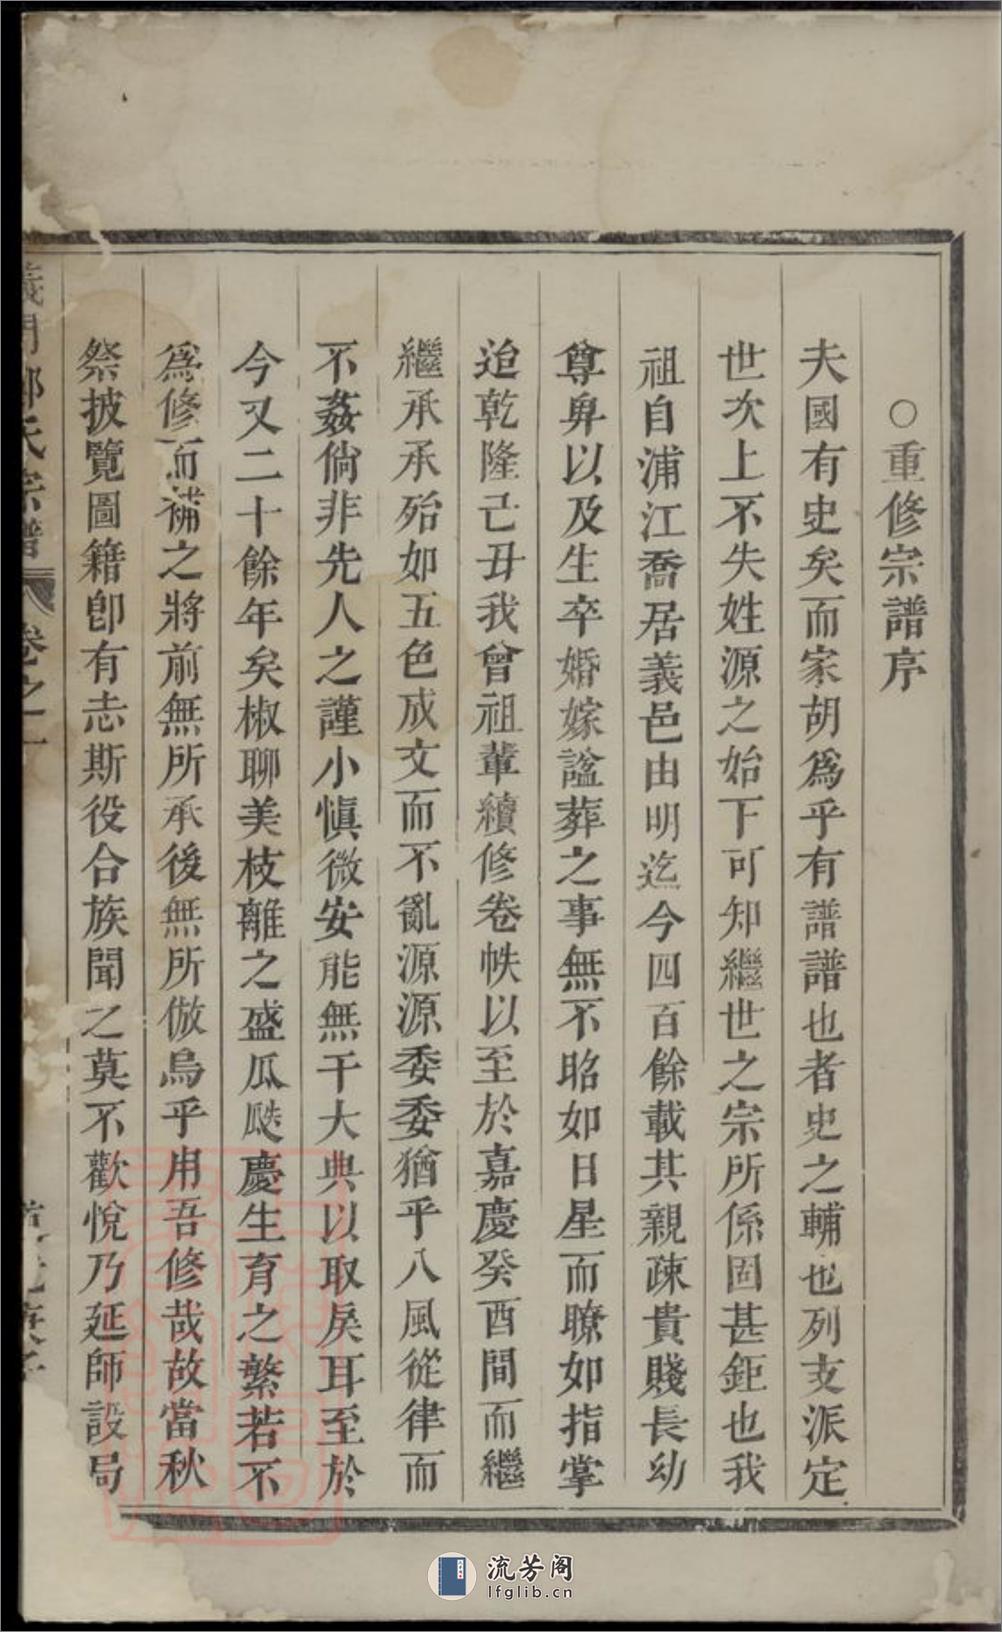 ○重修宗譜序
夫國有史矣而家胡爲乎有譜譜也者史之輔也列支派定
世次上不失姓源之始下可知繼世之宗所係固甚鉅也我
祖自浦江喬居義邑由明迄今四百餘載其親疎貴賤長幼
尊卑以及生卒婚嫁諡葬之事無不昭如日星而瞭如指掌
迨乾隆己丑我曾祖輩續修卷帙以至於嘉慶癸酉間而繼
繼承承殆如五色成文而不亂源源委委猶乎八風從律而
不姦倘非先人之謹小慎微安能無干大典以取戾耳至於
今又二十餘年矣椒聊美枝離之盛瓜瓞慶生育之繁若不
爲修而補之將前無所承後無所倣烏乎用吾修哉故當秋
祭披覽圖籍卽有志斯役合族聞之莫不歡悅乃延師設局
義門鄭氏宗譜 卷之一
流芳阁
lfglib.cn